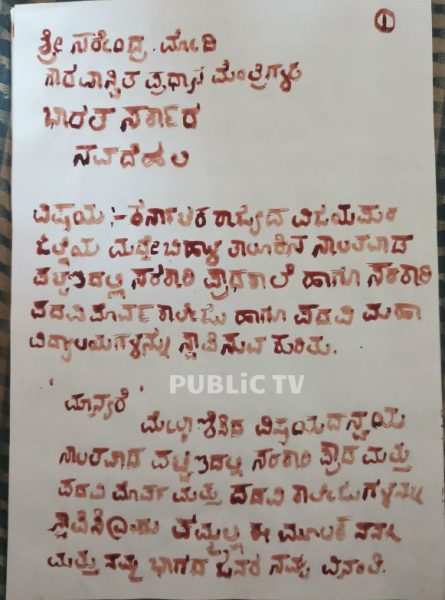 ①
ಶ್ರೀ ನರೇಂದ್ರ ಮೋದಿ
ಗೌರವಾನ್ವಿತ ಪ್ರಧಾನ ಮಂತ್ರಿಗಳು
ಭಾರತ ಸರ್ಕಾರ
ನವದೆಹಲಿ
ವಿಷಯ :- ಕರ್ನಾಟಕ ರಾಜ್ಯದ ವಿಜಯಪುರ
ಜಿಲ್ಲೆಯ ಮುದ್ದೇಬಿಹಾಳ ತಾಲೂಕಿನ ನಾಲತವಾಡ
ಪಟ್ಟಣದಲ್ಲಿ ಸರಕಾರಿ ಪ್ರೌಢಶಾಲೆ ಹಾಗೂ ಸರಕಾರಿ
ಪದವಿ ಪೂರ್ವ ಕಾಲೇಜು ಹಾಗೂ ಪದವಿ ಮಹಾ
ವಿದ್ಯಾಲಯಗಳನ್ನು ಸ್ಥಾಪಿಸುವ ಕುರಿತು.
PUBLiC TV
'ಮಾನ್ಯರೆ'
ಮೇಲ್ಕಾಣಿಸಿದ ವಿಷಯದನ್ವಯ
ನಾಲತವಾಡ ಪಟ್ಟಣದಲ್ಲಿ ಸರಕಾರಿ ಪ್ರೌಢ ಮತ್ತು
ಪದವಿ ಪೂರ್ವ ಮತ್ತು ಪದವಿ ಕಾಲೇಜುಗಳನ್ನು
ತಮ್ಮಲ್ಲಿ ಈ ಮೂಲಕ ನನ್ನ
ಮತ್ತು ನಮ್ಮ ಭಾಗದ ಜನರ ನಮ್ರ ವಿನಂತಿ.